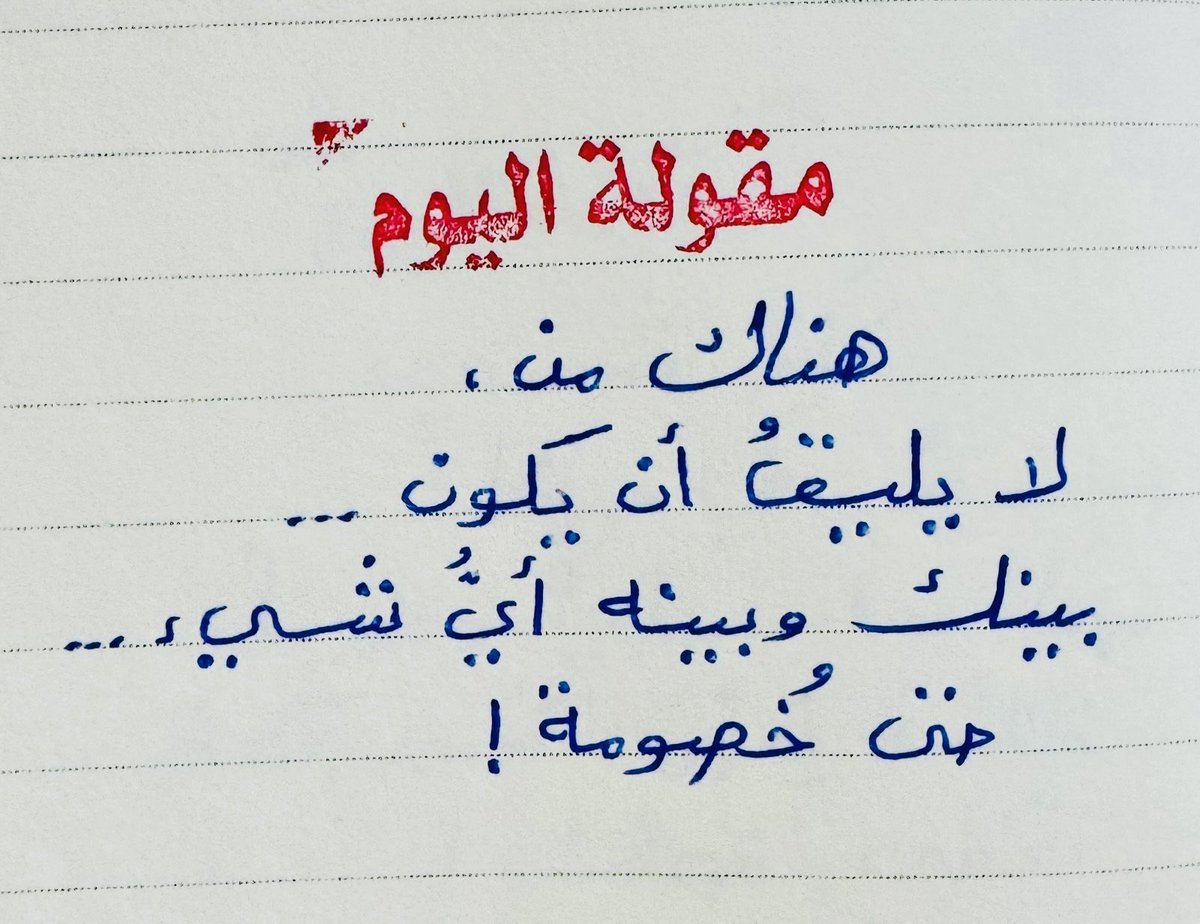 مقولة اليوم
هناك من ،
لا يليقُ أن يكون ...
بينك وبينه أيُّ شيء ...
حتى خُصومة !